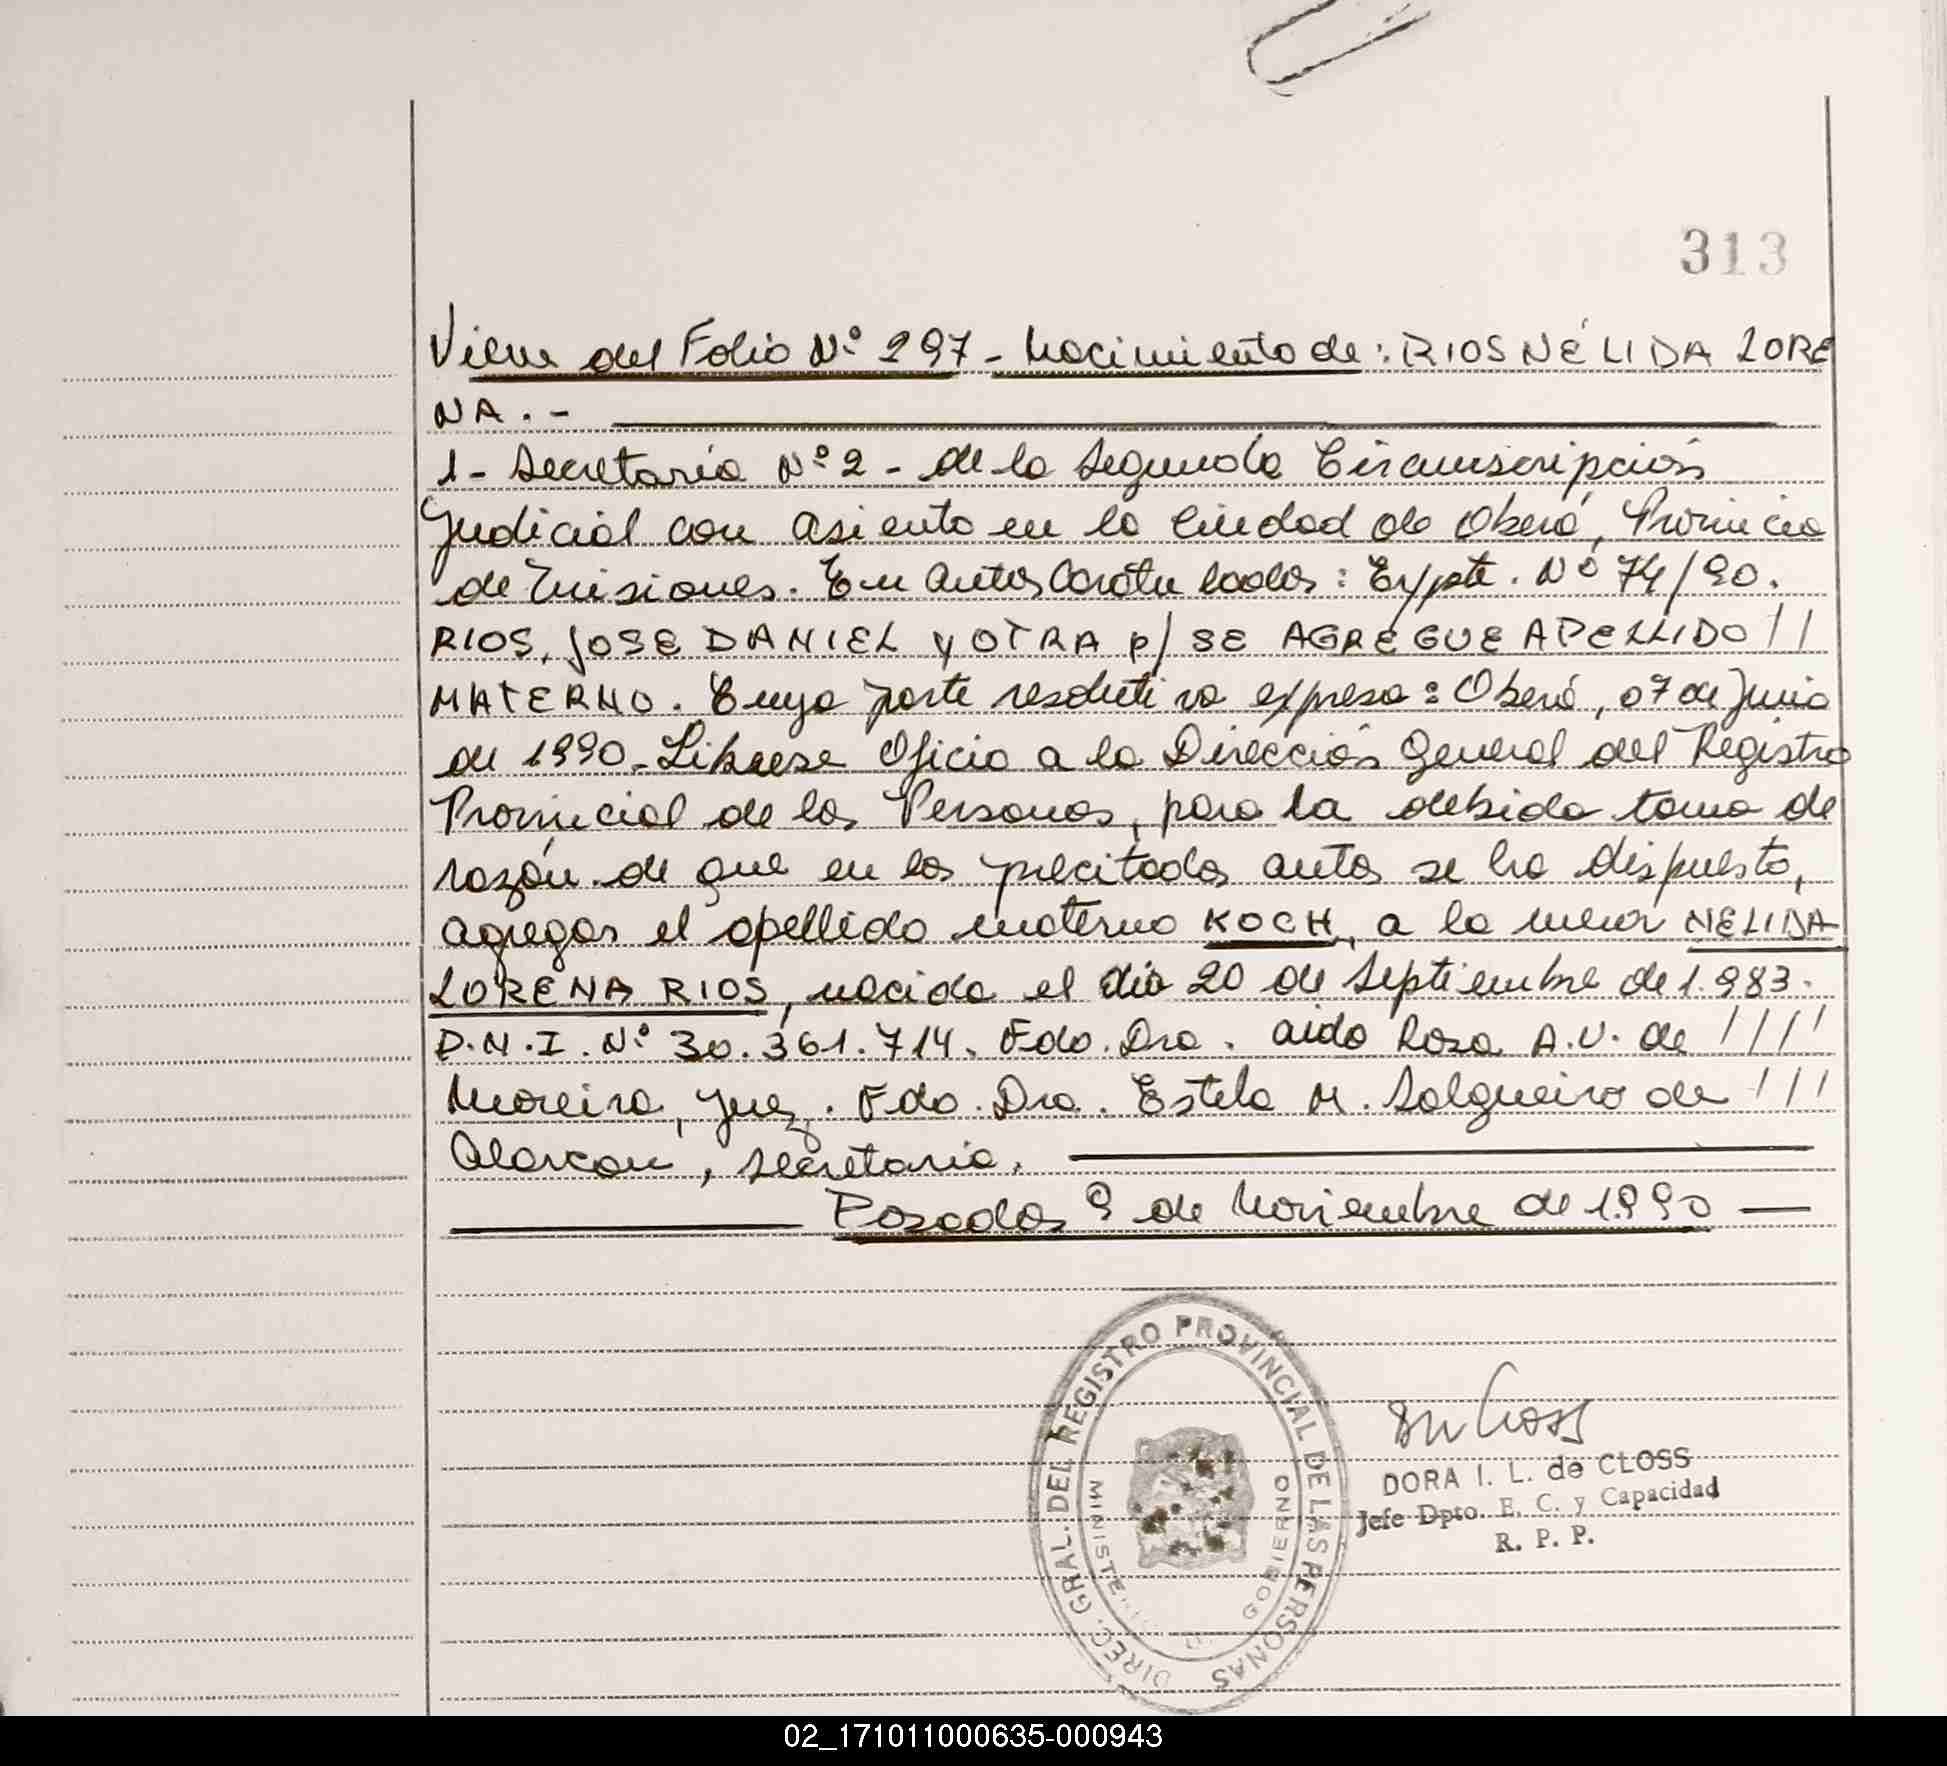 313
Viene del Folio Nº 297 - Nacimiento de: RIOS NÉLIDA LORE
NA. -
1 - Secretaría Nº 2 - de la Segunda Circunscripción
Judicial con asiento en la Ciudad de Oberá, Provincia
de Misiones. En autos Caratulados: Expte. Nº 74/90.
RIOS, JOSE DANIEL Y OTRA p/ SE AGREGUE APELLIDO //
MATERNO. Cuya parte resolutiva expresa: Oberá, 07 de Junio
de 1990. Librese Oficio a la Dirección General del Registro
Provincial de las Personas, para la debida toma de
razón de que en los precitados autos se ha dispuesto,
agregar el apellido materno KOCH, a la menor NELIDA
LORENA RIOS, nacida el día 20 de Septiembre de 1.983.
D.N.I. Nº 30.361.714. Fdo. Dra. Aida Rosa A.V. de ////
Moreira, Juez. Fdo. Dra. Estela M. Salgueiro de ///
Alarcon, Secretaria.
Posadas 9 de Noviembre de 1990
DIREC. GRAL. DEL REGISTRO PROVINCIAL DE LAS PERSONAS
GOBIERNO
DORA I. L. de CLOSS
Jefe Dpto. E. C. y Capacidad
R. P. P.
02_171011000635-000943